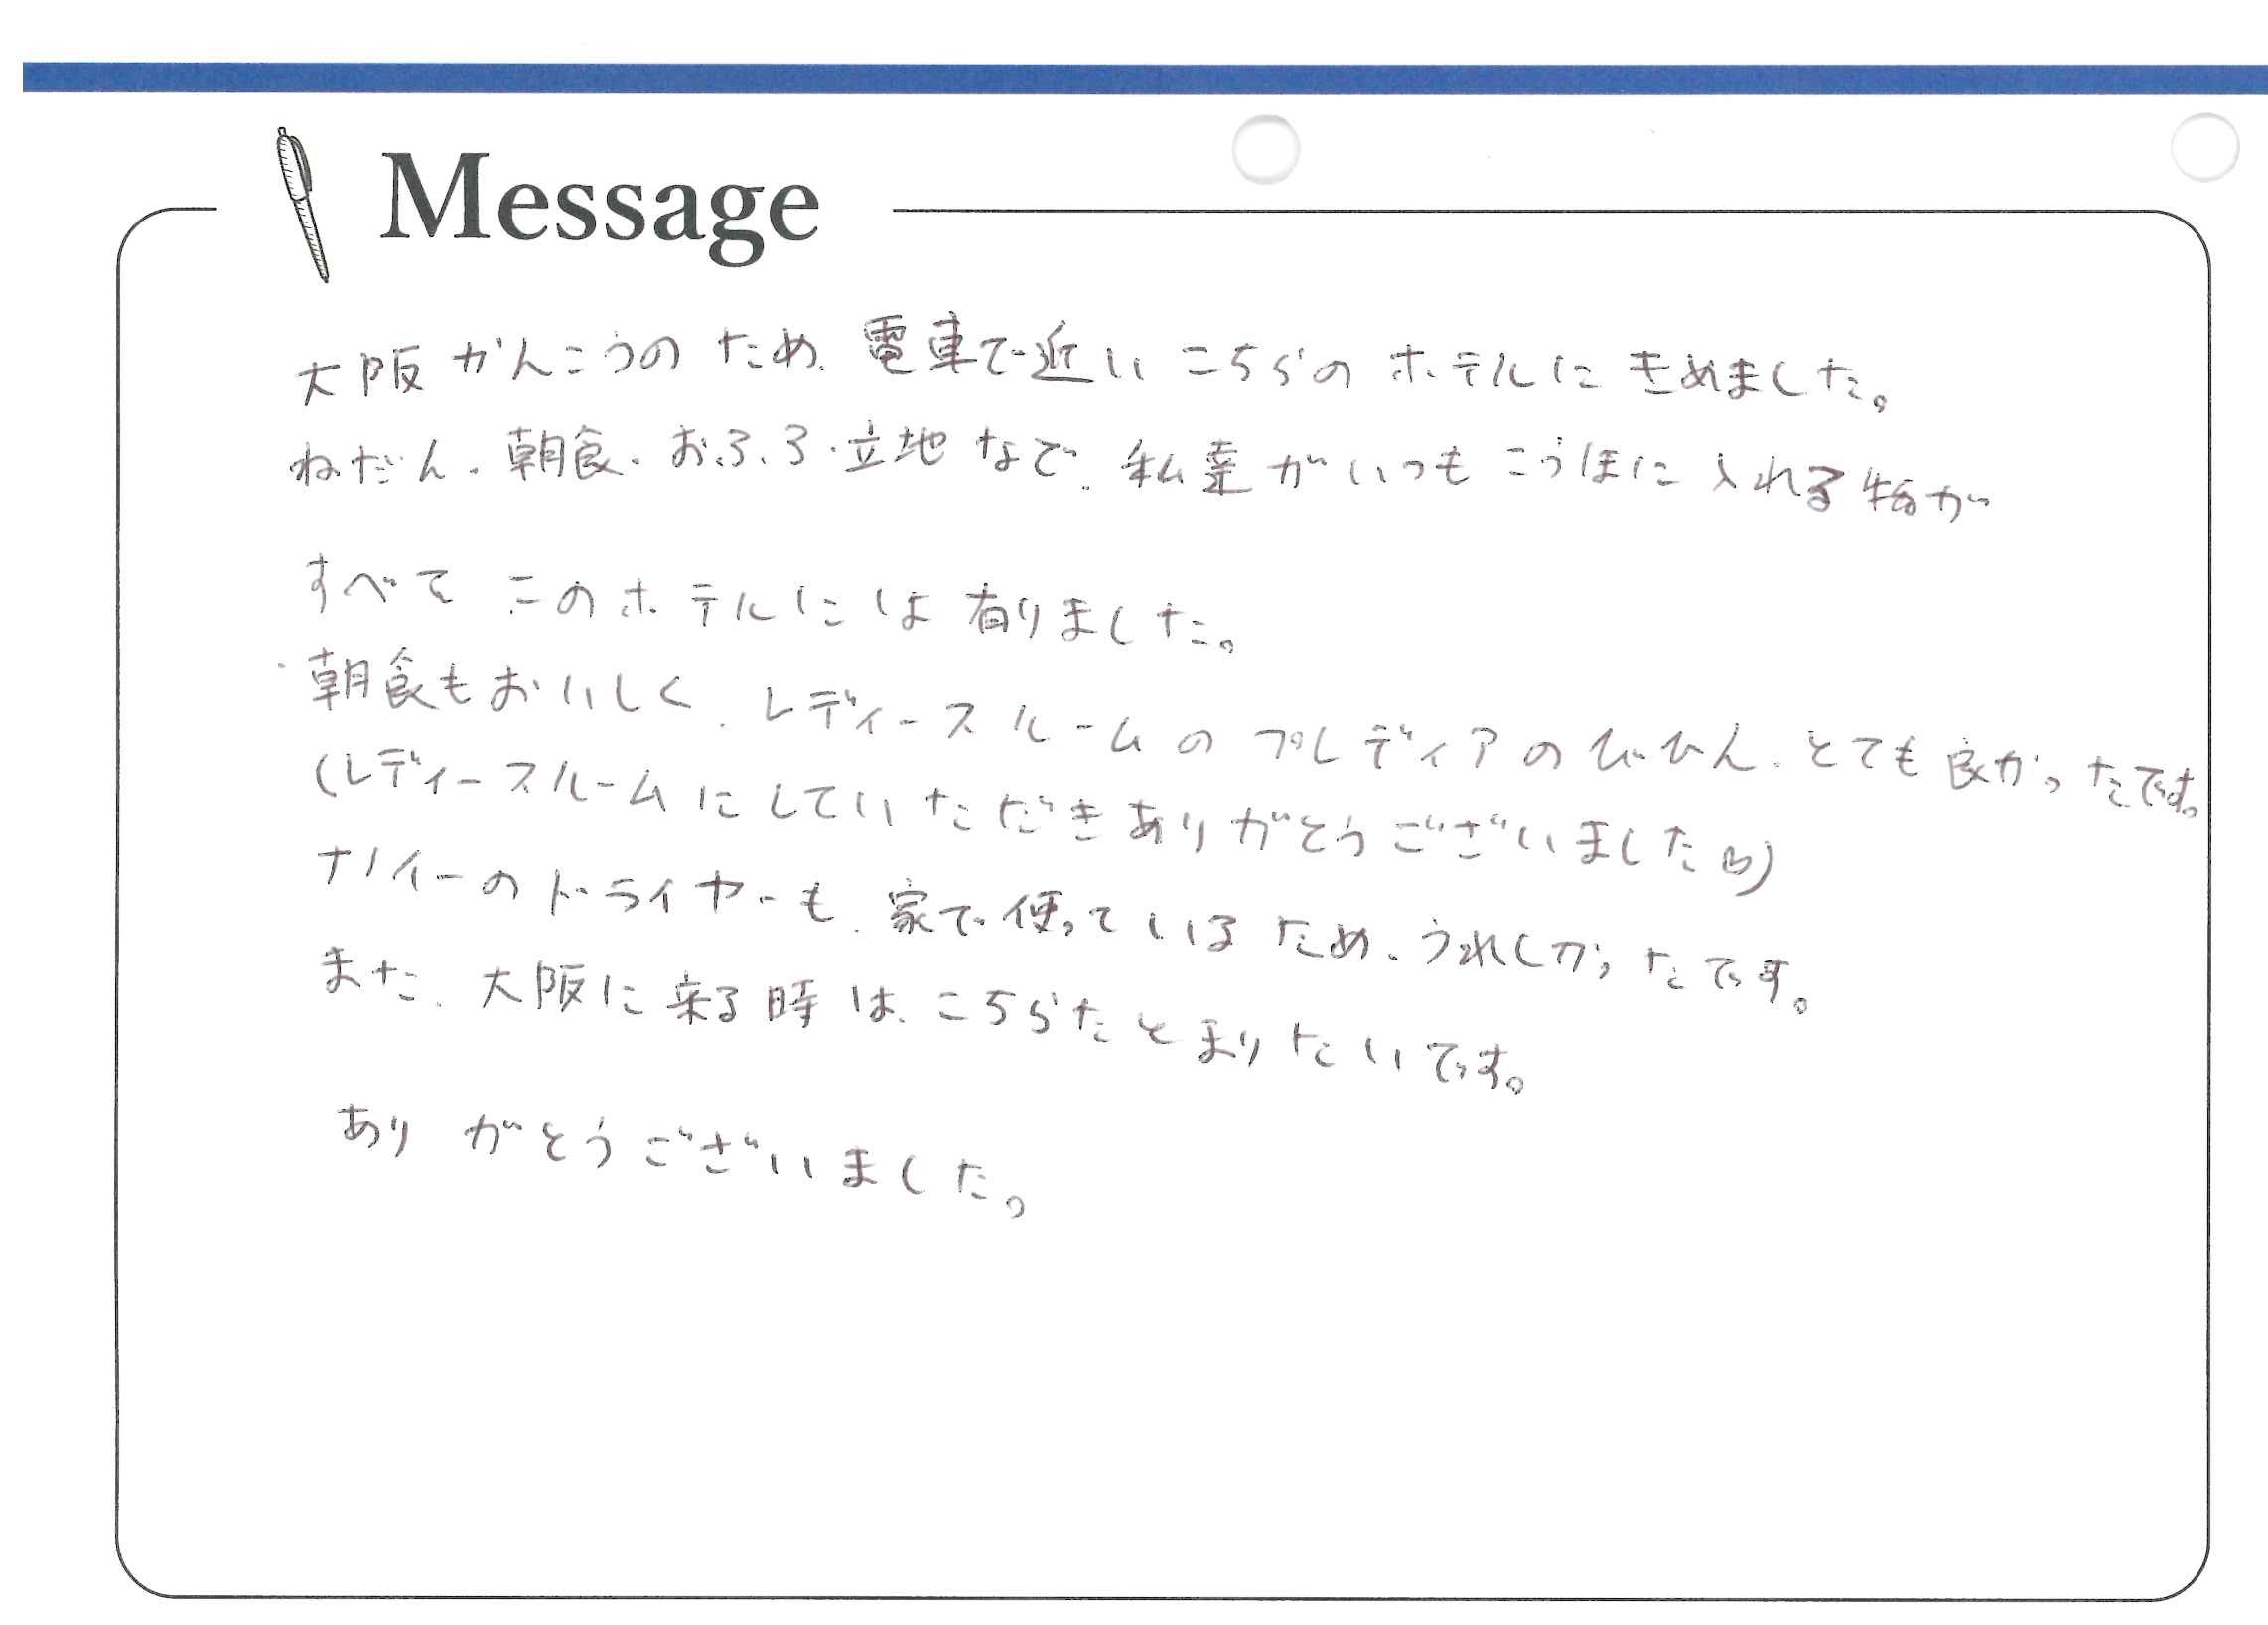 Message
大阪かんこうのため、電車で近いこちらのホテルにきめました。
ねだん、朝食、おふろ、立地など、私達がいつもこうほに入れる物が
すべてこのホテルには有りました。
朝食もおいしく、レディースルームのプレディアのびひん、とても良かったです。
(レディースルームにしていただきありがとうございました♡)
ナノイーのドライヤーも、家で使っているため、うれしかったです。
また、大阪に来る時は、こちらたとまりたいです。
ありがとうございました。